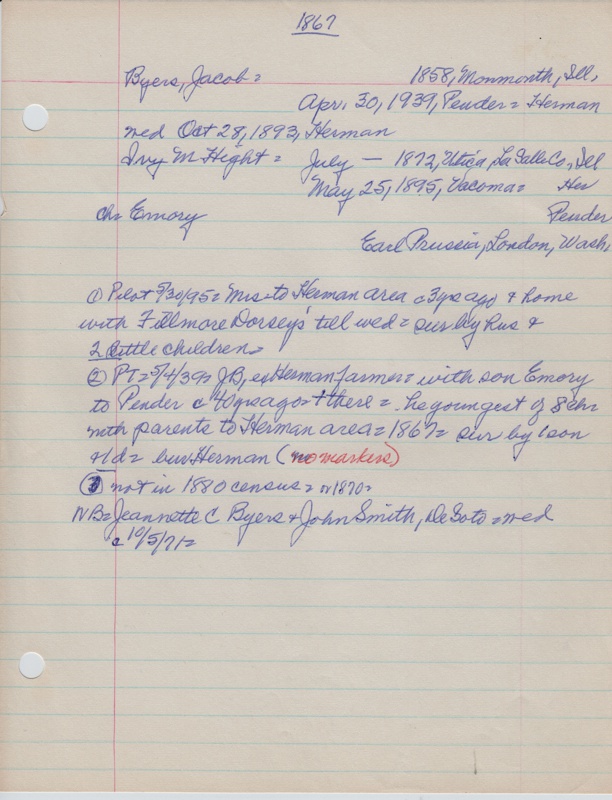 1867
Byers, Jacob = 1858, Monmonth, Ill,
Apr. 30, 1939, Pender = Herman
wed Oct 28, 1893, Herman
Ivy M Hight = July — 1872, Utica, La Salle Co., Ill
May 25, 1895, Tacoma = Her
ch = Emory Pender
Earl Prussia, London, Wash,
① Pilot 5/30/95 = Mrs = to Herman area c 3 yrs ago & home
with Fillmore Dorsey's till wed = sur by hus &
2 little children =
② PT = 5/4/39 = JB, ex Herman farmer = with son Emory
to Pender c 40 yrs ago = & there = he youngest of 8 chr
with parents to Herman area = 1867 = sur by 1 son
& 1 d = bur Herman (no markers)
③ not in 1880 census = or 1870 =
NB = Jeannette C Byers & John Smith, De Soto = wed
c 10/5/71 =